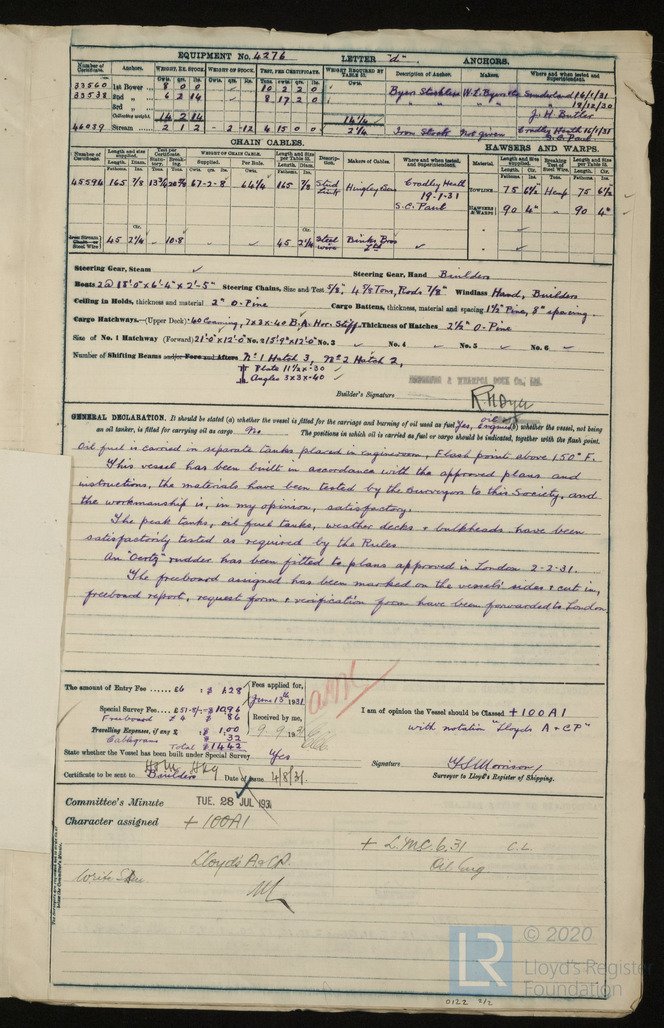 EQUIPMENT No. 4276 LETTER "d" ANCHORS.
Number of Certificate. Anchors. WEIGHT, EX. STOCK. WEIGHT OF STOCK. TEST, PER CERTIFICATE. WEIGHT REQUIRED BY TABLE 31. Description of Anchor. Makers. Where and when tested and Superintendent.
33560 1st Bower 8 0 0 10 2 2 0 Byers Stockless W.L. Byers & Co Sunderland 16/1/31
33538 2nd " 6 2 14 8 17 2 0 " " " " " 18/12/30
3rd " J. H. Butler
Collective weight. 14 2 14 14 1/4
46039 Stream 2 1 2 - 2-12 4 15 0 0 2 1/4 Iron Stock Not given Cradley Heath 15/1/31
S.C. Paul
CHAIN CABLES. HAWSERS AND WARPS.
45594 165 7/8 67-2-8 64 1/4 165 7/8 Stud Link Hingley Bros Cradley Heath TOWLINE 75 6 1/2 Hemp 75 6 1/2
19-1-31 HAWSERS & WARPS 90 4" " 90 4"
S.C. Paul
Iron Stream Chain or Steel Wire 45 2 1/4 10.8 45 2 1/4 Steel wire Binks Bros Ltd
Steering Gear, Steam Steering Gear, Hand Builders
Boats 2 @ 18'-0" x 6'-4" x 2'-5" Steering Chains, Size and Test 5/8", 4 5/8 Tons, Rods 7/8" Windlass Hand, Builders
Ceiling in Holds, thickness and material 2" O. Pine Cargo Battens, thickness, material and spacing 1 1/2" Pine, 8" spacing.
Cargo Hatchways.—(Upper Deck) .40 Coaming, 7x3x.40 B.A. Hor. Stiff. Thickness of Hatches 2 1/2" O. Pine
Size of No. 1 Hatchway (Forward) 21'0"x12'0" No. 2 15'9"x12'0" No. 3 No. 4 No. 5 No. 6
Number of Shifting Beams and/or Fore and Afters No 1 Hatch 3, No 2 Hatch 2,
Plate 11 1/2 x .30
Angles 3x3x.40
Builder's Signature
GENERAL DECLARATION. It should be stated (a) whether the vessel is fitted for the carriage and burning of oil used as fuel Yes, oil engines (b) whether the vessel, not being
an oil tanker, is fitted for carrying oil as cargo No. The positions in which oil is carried as fuel or cargo should be indicated, together with the flash point.
Oil fuel is carried in separate tanks placed in engineroom, Flash point above 150° F.
This vessel has been built in accordance with the approved plans and
instructions, the materials have been tested by the Surveyors to this Society, and
the workmanship is, in my opinion, satisfactory.
The peak tanks, oil fuel tanks, weather decks & bulkheads have been
satisfactorily tested as required by the Rules
An "Oertz" rudder has been fitted to plans approved in London 2-2-31.
The freeboard assigned has been marked on the vessels sides & cut in,
freeboard report, request form & verification form have been forwarded to London,
The amount of Entry Fee ...... £6 : $ 128 Fees applied for,
June 13th 1931
Special Survey Fee .. £51-8/- : $ 1096
Freeboard £ 4 $ 86 Received by me, I am of opinion the Vessel should be Classed +100A1
Travelling Expenses, if any £ : $ 1.00 9.9.31 with notation "Lloyds A & CP"
Cablegrams $ 32
Total $ 1442
State whether the Vessel has been built under Special Survey Yes Signature
Certificate to be sent to Builders Date of issue 4/8/31. Surveyor to Lloyd's Register of Shipping.
Committee's Minute TUE. 28 JUL 1931
Character assigned +100A1
+ L.M.C. 6.31 C.L.
Lloyd's A & CP. Oil Eng.
© 2020
LR Lloyd's Register
Foundation
0122 2/2